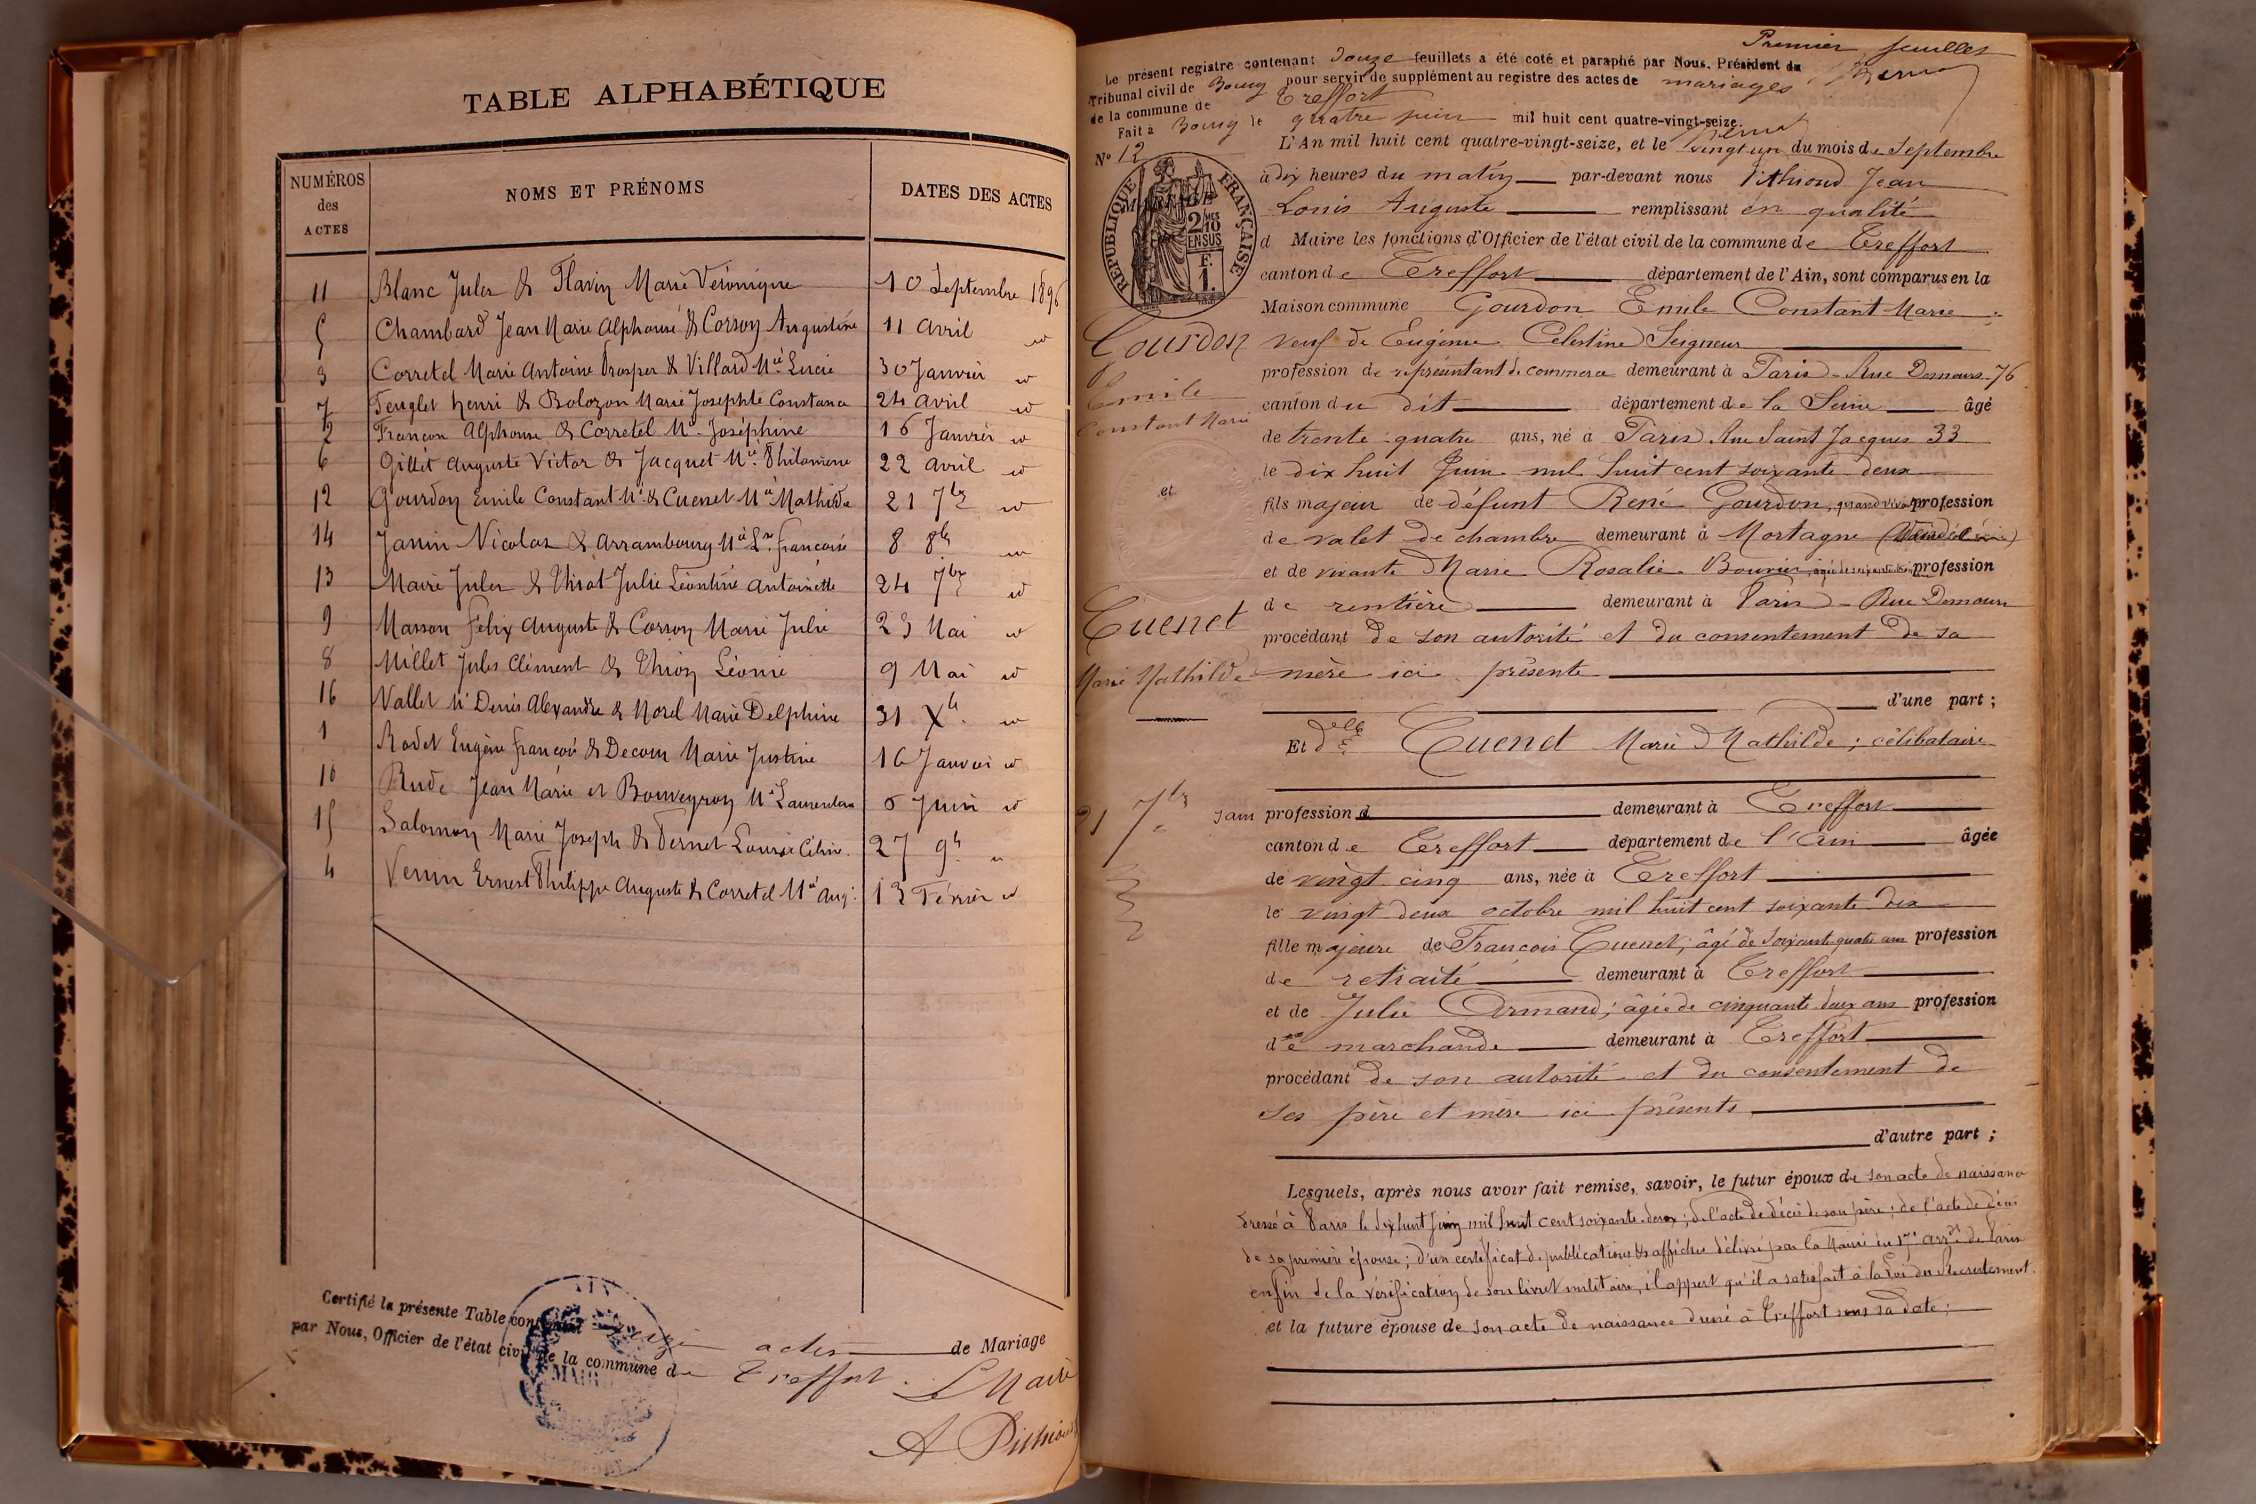 TABLE ALPHABÉTIQUE
NUMÉROS des ACTES
NOMS ET PRÉNOMS
DATES DES ACTES
11 Blanc Jules & Flavin Marie Véronique 10 Septembre 1896
5 Chambard Jean Marie Alphonse & Corson Augustine 11 avril
3 Corretel Marie Antoine Prosper & Villard Mie Lucie 30 Janvier
7 Feuglet henri & Bolozon Marie Josephte Constance 24 avril
2 Francon Alphonse & Corretel M. Joséphine 16 Janvier
6 Gillet Auguste Victor & Jacquet Mie Philomène 22 avril
12 Gourdon Emile Constant M. & Cuenet Mie Mathilde 21 7bre
14 Janin Nicolas & Arrambourg Mie Françoise 8 8bre
13 Maire Jules & Thivat Julie Léontine Antoinette 24 7bre
9 Masson Félix Auguste & Corson Marie Julie 23 Mai
8 Millet Jules Clément & Thion Léonie 9 Mai
16 Vallet Denis Alexandre & Morel Marie Delphine 31 Xbre
1 Rodet Eugène François & Decour Marie Justine 16 Janvier
10 Rude Jean Marie et Bouveyron 6 Juin
15 Salomon Marie Joseph & Vernet Louise Céline 27 9bre
4 Venin Ernest Philippe Auguste & Corretel Mie Aug. 13 Février
Certifié la présente Table contenant seize actes de Mariage
par Nous, Officier de l'état civil de la commune de Treffort. Le Maire
A Pithioud
MAIRIE
Premier feuillet
Le présent registre contenant Douze feuillets a été coté et paraphé par Nous, Président du
Tribunal civil de Bourg pour servir de supplément au registre des actes de mariages
de la commune de Treffort
Fait à Bourg le quatre juin mil huit cent quatre-vingt-seize.
No 12
L'An mil huit cent quatre-vingt-seize, et le vingt un du mois de Septembre
à dix heures du matin par-devant nous Pithioud Jean
Louis Auguste remplissant en qualité
d Maire les fonctions d'Officier de l'état civil de la commune de Treffort
canton de Treffort département de l'Ain, sont comparus en la
Maison commune Gourdon Emile Constant Marie
RÉPUBLIQUE FRANÇAISE
2/10 EN SUS
F. 1.
MARIAGE
Gourdon
Emile
Constant Marie
et
Cuenet
Marie Mathilde
21 7bre
veuf de Eugénie Célestine Seigneur
profession de représentant de commerce demeurant à Paris - Rue Demours 76
canton du dit département de la Seine âgé
de trente-quatre ans, né à Paris Rue Saint Jacques 33
le dix huit Juin mil huit cent soixante deux
fils majeur de défunt René Gourdon, quand vivait profession
de valet de chambre demeurant à Mortagne
et de vivante Marie Rosalie Bouvier, profession
de rentière demeurant à Paris - Rue Demours
procédant de son autorité et du consentement de sa
mère ici présente
d'une part ;
Et delle Cuenet Marie Mathilde ; célibataire
sans profession d demeurant à Treffort
canton de Treffort département de l'Ain âgée
de vingt cinq ans, née à Treffort
le vingt deux octobre mil huit cent soixante dix
fille majeure de François Cuenet ; âgé de soixante quatre ans profession
de retraité demeurant à Treffort
et de Julie Armand ; âgée de cinquante deux ans profession
de marchande demeurant à Treffort
procédant de son autorité et du consentement de
ses père et mère ici présents
d'autre part ;
Lesquels, après nous avoir fait remise, savoir, le futur époux de son acte de naissance
dressé à Paris le dix huit Juin mil huit cent soixante deux ; de l'acte de décès de son père ; de l'acte de décès
de sa première épouse ; d'un certificat de publications & affiches délivré par la Mairie du 17e arrt de Paris
enfin de la vérification de son livret militaire, il appert qu'il a satisfait à la Loi du Recrutement.
et la future épouse de son acte de naissance dressé à Treffort sous sa date ;